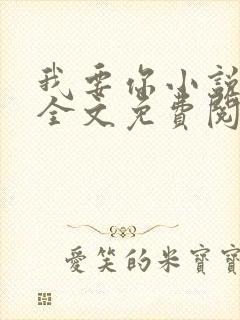 我要你小說
全文免費閱
愛笑的米寶寶